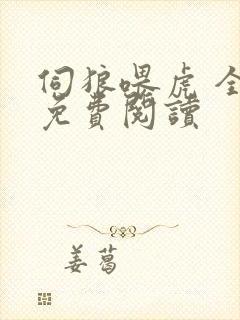 伺狼喂虎 全
免費閱讀
姜葛